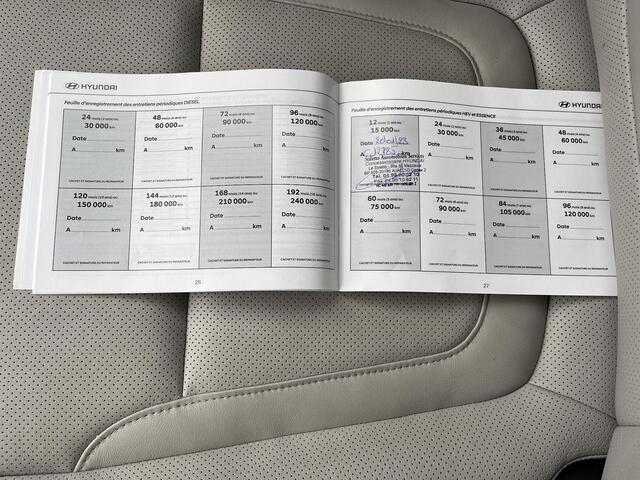 HYUNDAI
Feuille d'enregistrement des entretiens périodiques DIESEL
24 mois (2 ans) ou
30 000 km
Date
A km
CACHET ET SIGNATURE DU RÉPARATEUR
48 mois (4 ans) ou
60 000 km
Date
A km
CACHET ET SIGNATURE DU RÉPARATEUR
72 mois (6 ans) ou
90 000 km
Date
A km
CACHET ET SIGNATURE DU RÉPARATEUR
96 mois (8 ans) ou
120 000 km
Date
A km
CACHET ET SIGNATURE DU RÉPARATEUR
120 mois (10 ans) ou
150 000 km
Date
A km
CACHET ET SIGNATURE DU RÉPARATEUR
144 mois (12 ans) ou
180 000 km
Date
A km
CACHET ET SIGNATURE DU RÉPARATEUR
168 mois (14 ans) ou
210 000 km
Date
A km
CACHET ET SIGNATURE DU RÉPARATEUR
192 mois (16 ans) ou
240 000 km
Date
A km
CACHET ET SIGNATURE DU RÉPARATEUR
26
HYUNDAI
Feuille d'enregistrement des entretiens périodiques HEV et ESSENCE
12 mois (1 an) ou
15 000 km
Date
A km
Automobiles Services
Concessionnaire HYUNDAI
24 mois (2 ans) ou
30 000 km
Date
A km
CACHET ET SIGNATURE DU RÉPARATEUR
36 mois (3 ans) ou
45 000 km
Date
A km
CACHET ET SIGNATURE DU RÉPARATEUR
48 mois (4 ans) ou
60 000 km
Date
A km
CACHET ET SIGNATURE DU RÉPARATEUR
60 mois (5 ans) ou
75 000 km
Date
A km
CACHET ET SIGNATURE DU RÉPARATEUR
72 mois (6 ans) ou
90 000 km
Date
A km
CACHET ET SIGNATURE DU RÉPARATEUR
84 mois (7 ans) ou
105 000 km
Date
A km
CACHET ET SIGNATURE DU RÉPARATEUR
96 mois (8 ans) ou
120 000 km
Date
A km
CACHET ET SIGNATURE DU RÉPARATEUR
27